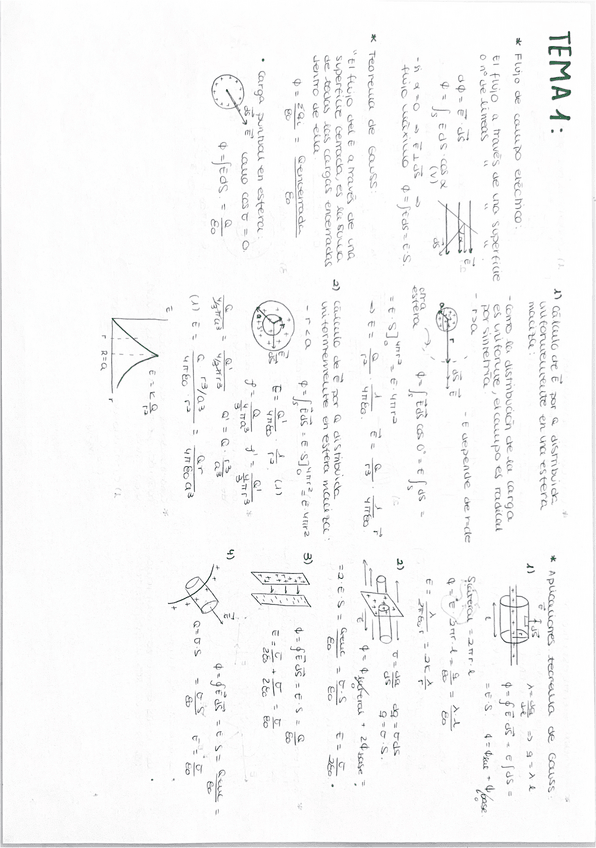 TEMA 1:
* Flujo de campo eléctrico:
El flujo a través de una superficie
o nº de líneas " " " "
dφ = E⃗ · dS⃗
φ = ∫s E dS cos α (V)
- si α = 0 ⇒ E⃗ ⊥ dS⃗ ⇒
flujo máximo φ = ∫E dS = E·S.
* Teorema de Gauss:
"El flujo del E a través de una
superficie cerrada, es la suma
de todas las cargas encerradas
dentro de ella
φ = ΣQi/ε0 = Q encerrada/ε0
• Carga puntual en esfera:
dS⃗ E⃗ como cos 0 = 0.
φ = ∫E dS = Q/ε0
1) Cálculo de E⃗ por Q distribuida
uniformemente en una esfera
maciza:
- como la distribución de la carga
es uniforme, el campo es radial
por simetría
- r > a
- E depende de r
otra esfera → φ = ∫s E⃗ dS⃗ cos 0° = E ∫ dS =
= E·S]0^4πr² = E·4πr²
⇒ E = Q/4πε0 · 1/r² E⃗ = Q/r³ · 1/4πε0 · r⃗
2) Cálculo de E⃗ por Q distribuida
uniformemente en esfera maciza:
- r < a
φ = ∫s E⃗ dS⃗ = E·S]0^4πr² = E 4πr²
E⃗ = Q'/4πε0 · 1/r² (1)
ρ = Q/(4/3 πa³) ρ' = Q'/(4/3 πr³)
Q/(4/3 πa³) = Q'/(4/3 πr³) Q' = Q · r³/a³
(1) E = Q r³/a³ / 4πε0 r² = Qr/4πε0 a³
E
E = K Q/r²
r R=a r
* Aplicaciones teorema de Gauss:
1) λ = dq/dl ⇒ q = λ l
φ = ∮ E⃗ dS⃗ = E ∫ dS =
= E·S. φ = φlat + φbase
S lateral = 2πr·l
φ = E 2πr·l = q/ε0 = λ·l/ε0
E = λ/2πε0 r = 2K λ/r
2) σ = dq/dS dq = σ dS
q = σ·S.
φ = φ lateral + 2φ base =
= 2·E·S = Qenc/ε0 = σ·S/ε0 E = σ/2ε0
3) φ = ∮ E⃗ dS⃗ = E·S = Q/ε0
E = σ/2ε0 + σ/2ε0 = σ/ε0
4) φ = ∮ E⃗ dS⃗ = E·S = Qenc/ε0 =
Q = σ·S = σ·S/ε0 E = σ/ε0